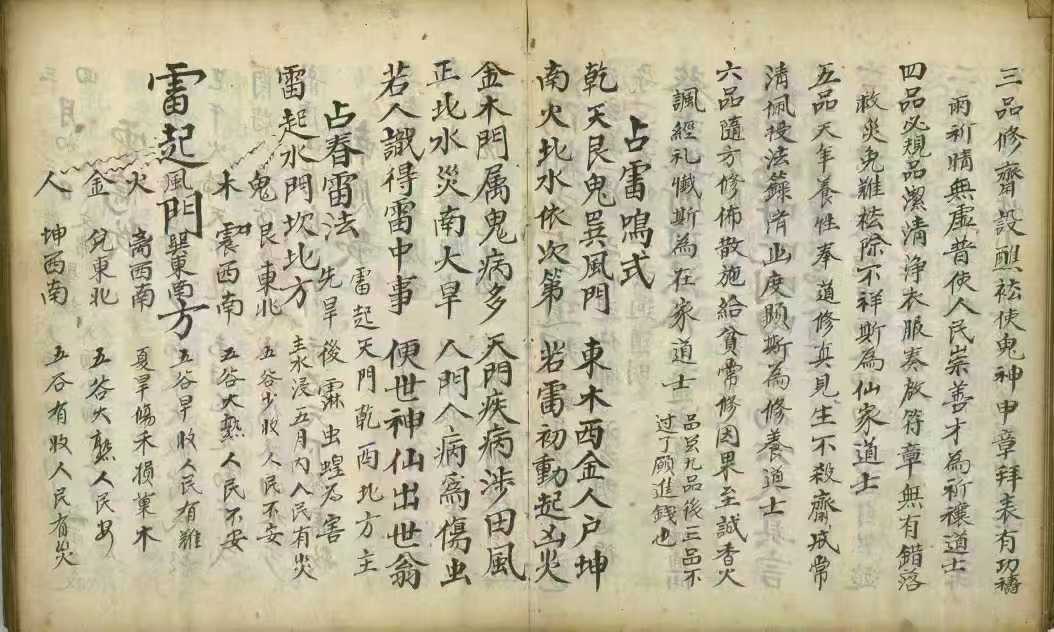 三品修齋設醮祛使鬼神申章拜表有功禱
雨祈晴無虛普使人民崇善才為祈禳道士
四品必規品潔清淨衣服奏放符章無有錯落
救災免難祛除不祥斯為仙家道士
五品天年養性奉道修真見生不殺齋戒常
清佩授法籙止度願斯為修養道士
六品隨方修佈散施給貧常修因果至誠香火
諷經礼懺斯為在家道士 品虽九品後三品不
过了願進錢也
占雷鳴式
乾天艮鬼巽風門 東木西金人户坤
南火北水依次第 若雷初動起凶災
金木門属鬼病多 天門疾病涉田風
正北水災南大旱 人門人病為傷虫
若人識得雷中事 便世神仙出世翁
占春雷法 雷起天門乾西北方主
先旱後霖虫蝗為害
雷起水門坎北方 主水浸五月内人民有災
鬼 艮東北 五谷少收人民不安
木 震西南 五谷大熟人民不安
雷起 門 方
風 巽東南 五谷旱收人民有難
火 离西南 夏旱傷禾損菓木
金 兌東北 五谷大熟人民安
人 坤西南 五谷有收人民有災